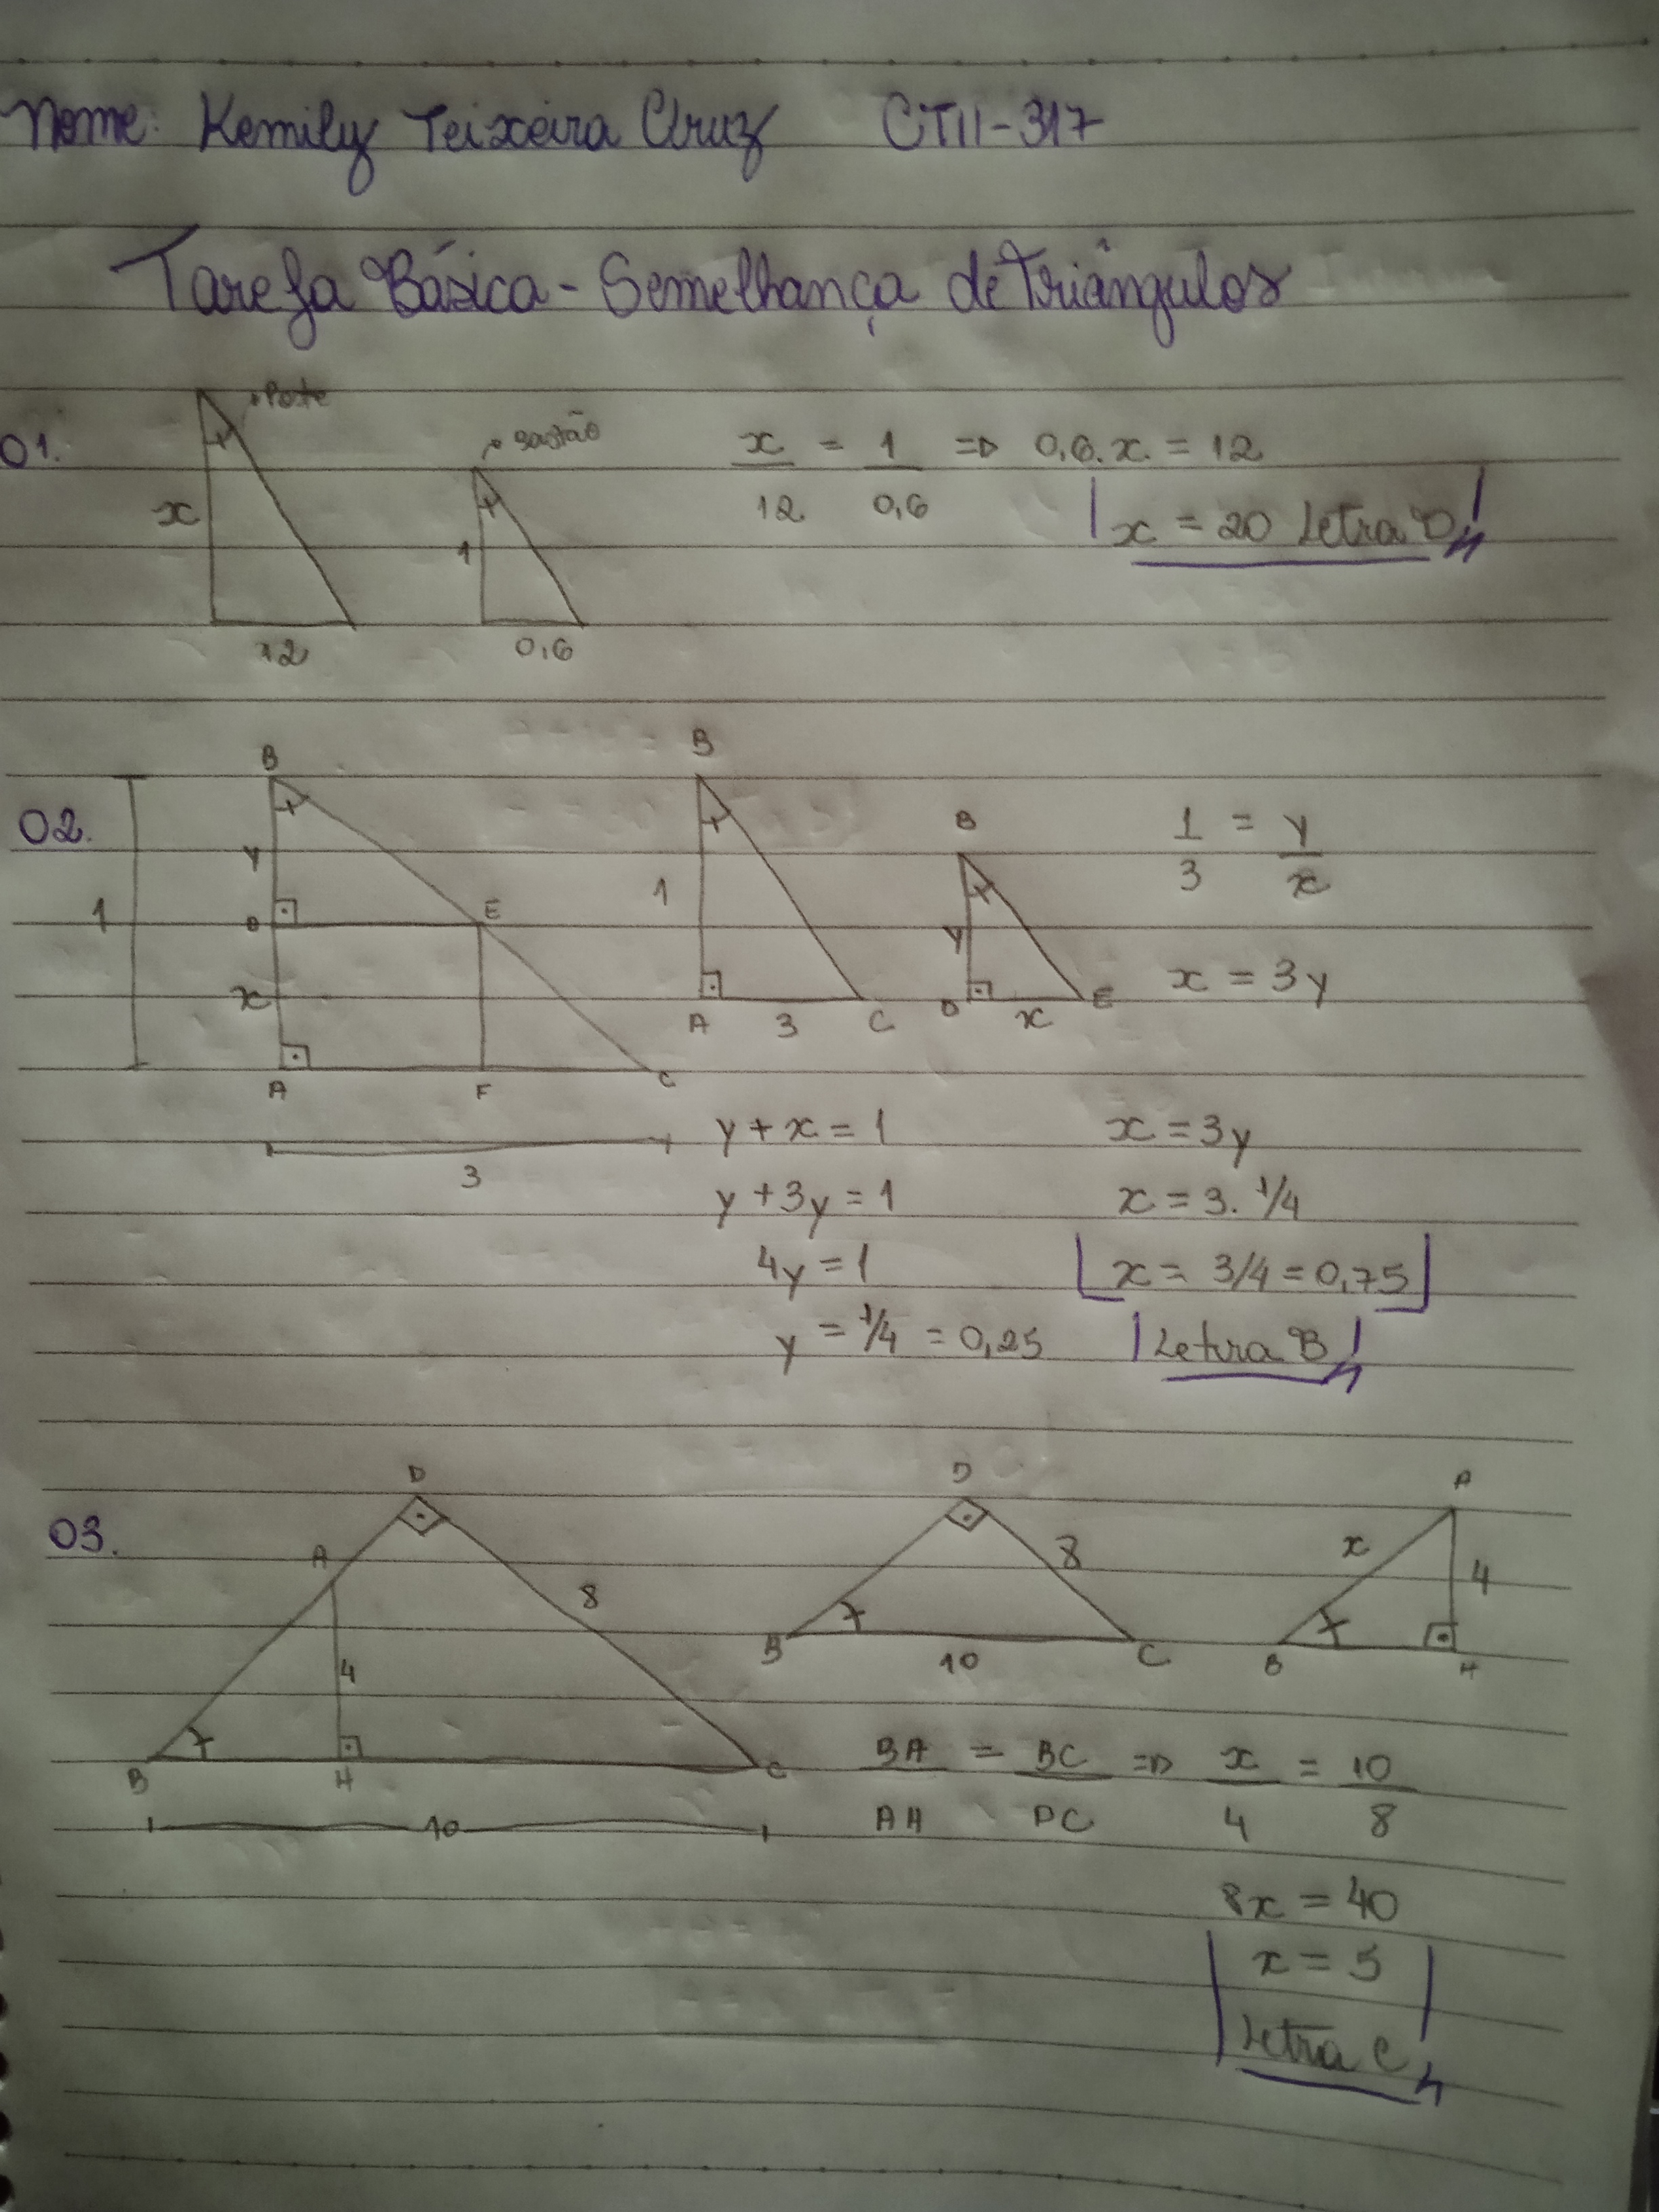 Nome: Kemily Teixeira Cruz CTII-317
Tarefa Básica - Semelhança de Triângulos
01.
Poste
x
12
bastão
1
0,6
x/12 = 1/0,6 => 0,6.x = 12
x = 20 Letra D
02.
B
y
D
E
x
1
A
F
C
3
B
1
A
3
C
B
y
D
x
E
1/3 = y/x
x = 3y
y + x = 1
x = 3y
y + 3y = 1
x = 3. 1/4
4y = 1
x = 3/4 = 0,75
y = 1/4 = 0,25
Letra B
03.
D
A
8
4
B
H
C
10
D
8
B
10
C
A
x
4
B
H
BA/AH = BC/DC => x/4 = 10/8
8x = 40
x = 5
Letra C